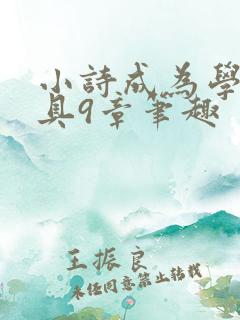 小詩成為學
具9章筆趣
王振良
未经同意禁止转载